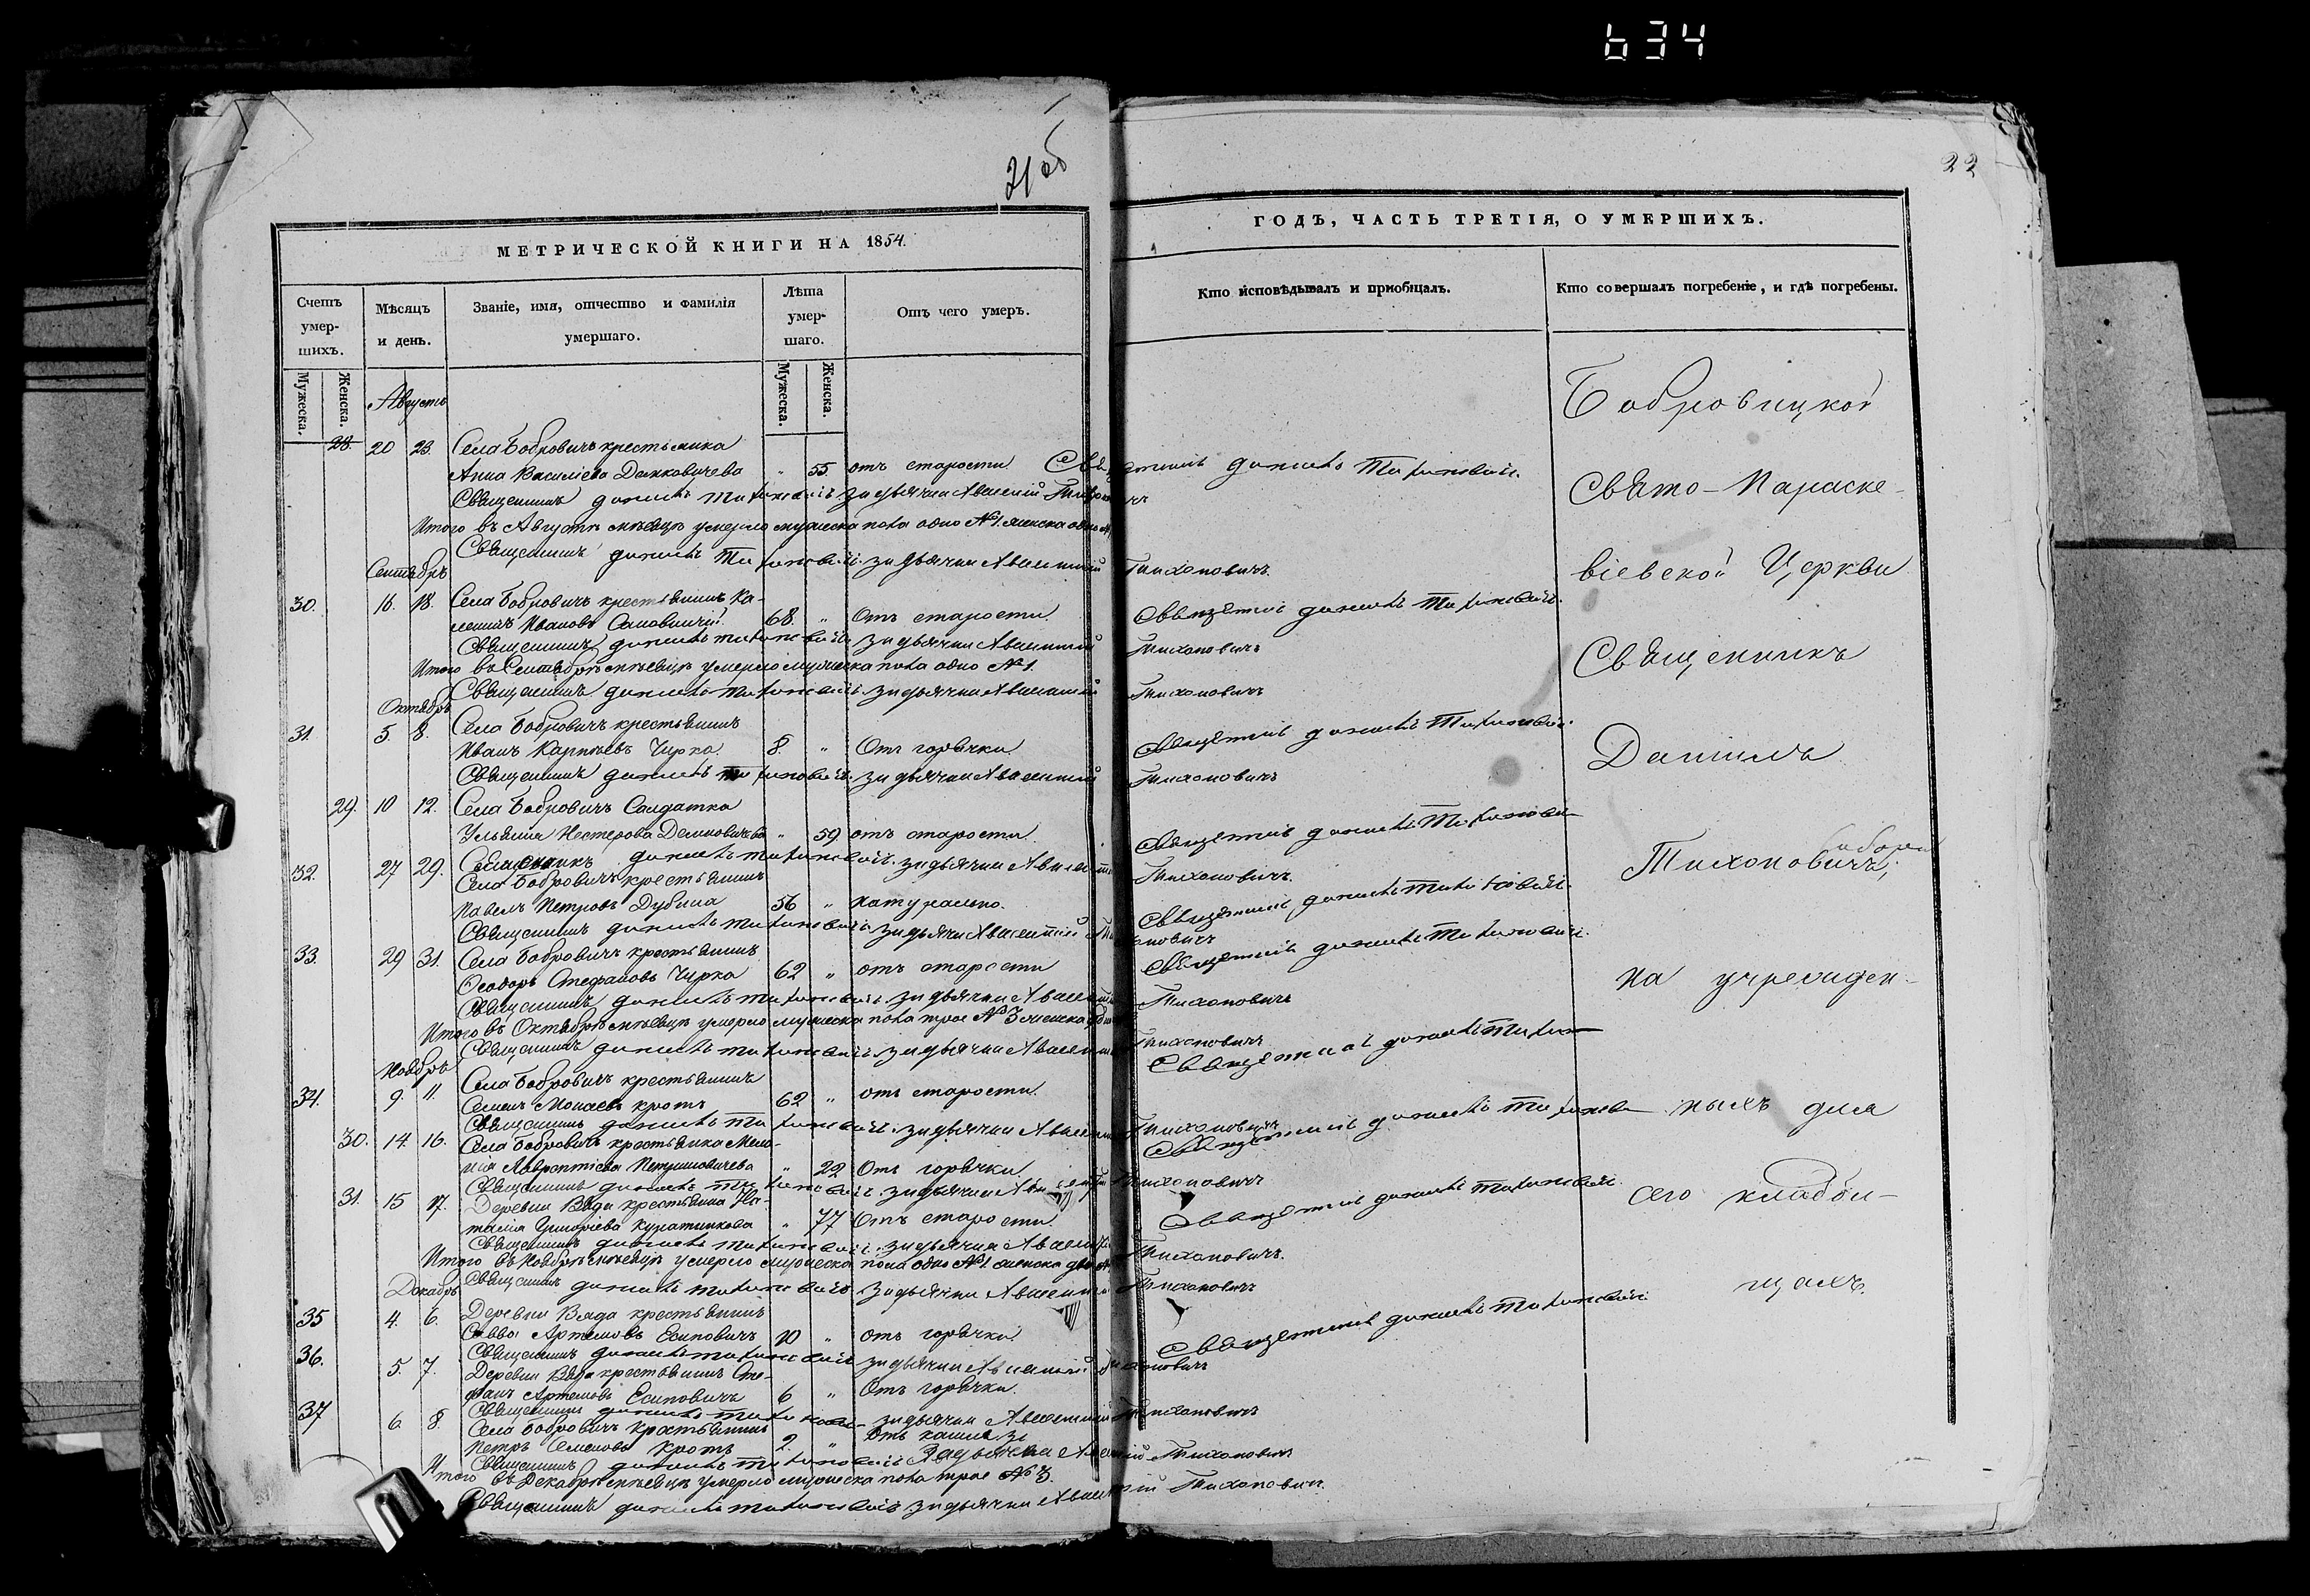 634
21 об
22
МЕТРИЧЕСКОЙ КНИГИ НА 1854.
ГОДЪ, ЧАСТЬ ТРЕТІЯ, О УМЕРШИХЪ.
Счетъ умер-шихъ.
Мѣсяцъ и день.
Званіе, имя, отчество и фамилія умершаго.
Лѣта умер-шаго.
Отъ чего умеръ.
Кто исповѣдывалъ и пріобщалъ.
Кто совершалъ погребеніе, и гдѣ погребены.
Мужеска. Женска.
Мужеска. Женска.
Августъ
28. 20 23. Села Бобровичъ крестьянка
Анна Василіева Демковичева " 55 отъ старости Священникъ Даніилъ Тихоновичъ.
Священникъ Даніилъ Тихоновичъ за дьячка Авксентій Тихоновичъ
Итого въ Августѣ мѣсяцѣ умерло мужеска пола одно №1. женска одно №1
Священникъ Даніилъ Тихоновичъ. за дьячка Авксентій Тихоновичъ.
Сентябрь
30. 16. 18. Села Бобровичъ крестьянинъ
Ивановъ 68. " Отъ старости. Священникъ Даніилъ Тихоновичъ.
Священникъ Даніилъ Тихоновичъ за дьячка Авксентій Тихоновичъ
Итого въ Сентябрѣ мѣсяцѣ умерло мужеска пола одно №1.
Священникъ Даніилъ Тихоновичъ. за дьячка Авксентій Тихоновичъ
Октябрь
31. 5. 8. Села Бобровичъ крестьянинъ
Иванъ Карпіевъ Чирко 8. " Отъ горячки. Священникъ Даніилъ Тихоновичъ.
Священникъ Даніилъ Тихоновичъ. за дьячка Авксентій Тихоновичъ
29. 10 12. Села Бобровичъ Солдатка
Ульянія Нестерова Демковичева " 59 отъ старости. Священникъ Даніилъ Тихонович
Священникъ Даніилъ Тихоновичъ. за дьячка Авксентій Тихоновичъ.
32. 27 29. Села Бобровичъ крестьянинъ
Павелъ Петровъ Дубина 56 " натурально. Священникъ Даніилъ Тихоновичъ.
Священникъ Даніилъ Тихоновичъ. за дьячка Авксентій Тихоновичъ
33. 29 31. Села Бобровичъ крестьянинъ
Ѳеодоръ Стефановъ Чирко 62 " отъ старости Священникъ Даніилъ Тихоновичъ.
Священникъ Даніилъ Тихоновичъ. за дьячка Авксентій Тихоновичъ
Итого въ Октябрѣ мѣсяцѣ умерло мужеска пола трое №3 женска одно
Священникъ Даніилъ Тихоновичъ. за дьячка Авксентій Тихоновичъ
Ноябрь
34. 9. 11. Села Бобровичъ крестьянинъ
Семенъ кротъ 62 " отъ старости. Священникъ Даніилъ Тихон
Священникъ Даніилъ Тихоновичъ. за дьячка Авксентій Тихоновичъ
30. 14 16. Села Бобровичъ крестьянка Мела-
нія Лаврентіева " 22 Отъ горячки Священникъ Даніилъ Тихонов
Священникъ Даніилъ Тихоновичъ. за дьячка Авксентій Тихоновичъ
31. 15 17. Деревни Вяда крестьянка На-
талія Григоріева " 77 Отъ старости. Священникъ Даніилъ Тихоновичъ.
Священникъ Даніилъ Тихоновичъ. за дьячка Авксентій Тихоновичъ.
Итого въ Ноябрѣ мѣсяцѣ умерло мужеска пола одно №1 женска двѣ
Священникъ Даніилъ Тихоновичъ за дьячка Авксентій Тихоновичъ
Декабрь
35 4. 6. Деревни Вяда крестьянинъ
Савва Артемовъ Есиповичъ 10 " отъ горячки. Священникъ Даніилъ Тихоновичъ.
Священникъ Даніилъ Тихоновичъ за дьячка Авксентій Тихоновичъ
36. 5. 7. Деревни Вяда крестьянинъ Сте-
фанъ Артемовъ Есиповичъ 6 " Отъ горячки.
Священникъ Даніилъ Тихонович за дьячка Авксентій Тихоновичъ
37 6 8. Села Бобровичъ крестьянинъ
Петръ Семеновъ кротъ 2. " Отъ кашля
Священникъ Даніилъ Тихоновичъ За дьячка Авксентій Тихоновичъ
Итого въ Декабрѣ мѣсяцѣ умерло мужеска пола трое №3.
Священникъ Даніилъ Тихоновичъ за дьячка Авксентій Тихонович.
Бобровицкой
Свято-Параске-
віевской Церкви
Священникъ
Даніилъ
Тихоновичъ;
на учрежден-
ныхъ для
сего кладби-
щахъ.